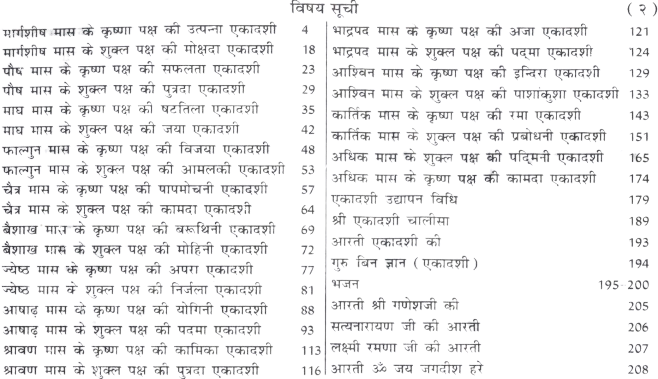 विषय सूची
( २ )
मार्गशीष मास के कृष्णा पक्ष की उत्पन्ना एकादशी 4
मार्गशीष मास के शुक्ल पक्ष की मोक्षदा एकादशी 18
पौष मास के कृष्ण पक्ष की सफलता एकादशी 23
पौष मास के शुक्ल पक्ष की पुत्रदा एकादशी 29
माघ मास के कृष्ण पक्ष की षटतिला एकादशी 35
माघ मास के शुक्ल पक्ष की जया एकादशी 42
फाल्गुन मास के कृष्ण पक्ष की विजया एकादशी 48
फाल्गुन मास के शुक्ल पक्ष की आमलकी एकादशी 53
चैत्र मास के कृष्ण पक्ष की पापमोचनी एकादशी 57
चैत्र मास के शुक्ल पक्ष की कामदा एकादशी 64
बैशाख मास के कृष्ण पक्ष की बरूथिनी एकादशी 69
बैशाख मास के शुक्ल पक्ष की मोहिनी एकादशी 72
ज्येष्ठ मास के कृष्ण पक्ष की अपरा एकादशी 77
ज्येष्ठ मास के शुक्ल पक्ष की निर्जला एकादशी 81
आषाढ़ मास के कृष्ण पक्ष की योगिनी एकादशी 88
आषाढ़ मास के शुक्ल पक्ष की पदमा एकादशी 93
श्रावण मास के कृष्ण पक्ष की कामिका एकादशी 113
श्रावण मास के शुक्ल पक्ष की पुत्रदा एकादशी 116
भाद्रपद मास के कृष्ण पक्ष की अजा एकादशी 121
भाद्रपद मास के शुक्ल पक्ष की पद्मा एकादशी 124
आश्विन मास के कृष्ण पक्ष की इन्दिरा एकादशी 129
आश्विन मास के शुक्ल पक्ष की पाशांकुशा एकादशी 133
कार्तिक मास के कृष्ण पक्ष की रमा एकादशी 143
कार्तिक मास के शुक्ल पक्ष की प्रबोधनी एकादशी 151
अधिक मास के शुक्ल पक्ष की पद्मिनी एकादशी 165
अधिक मास के कृष्ण पक्ष की कामदा एकादशी 174
एकादशी उद्यापन विधि 179
श्री एकादशी चालीसा 189
आरती एकादशी की 193
गुरु बिन ज्ञान ( एकादशी ) 194
भजन 195-200
आरती श्री गणेशजी की 205
सत्यनारायण जी की आरती 206
लक्ष्मी रमणा जी की आरती 207
आरती ॐ जय जगदीश हरे 208